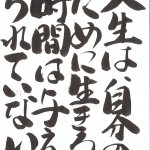 人生は、自分の
ために生きる
時間は与え
られていない